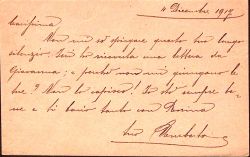 4 Dicembre 1917
Carissima
Non mi so spiegare questo tuo lungo
silenzio. Ieri ho ricevuta una lettera da
Giovanna; e perchè non mi giungono le
tue? Non lo capisco! Io sto sempre bene
e ti bacio tanto con
tuo Umberto